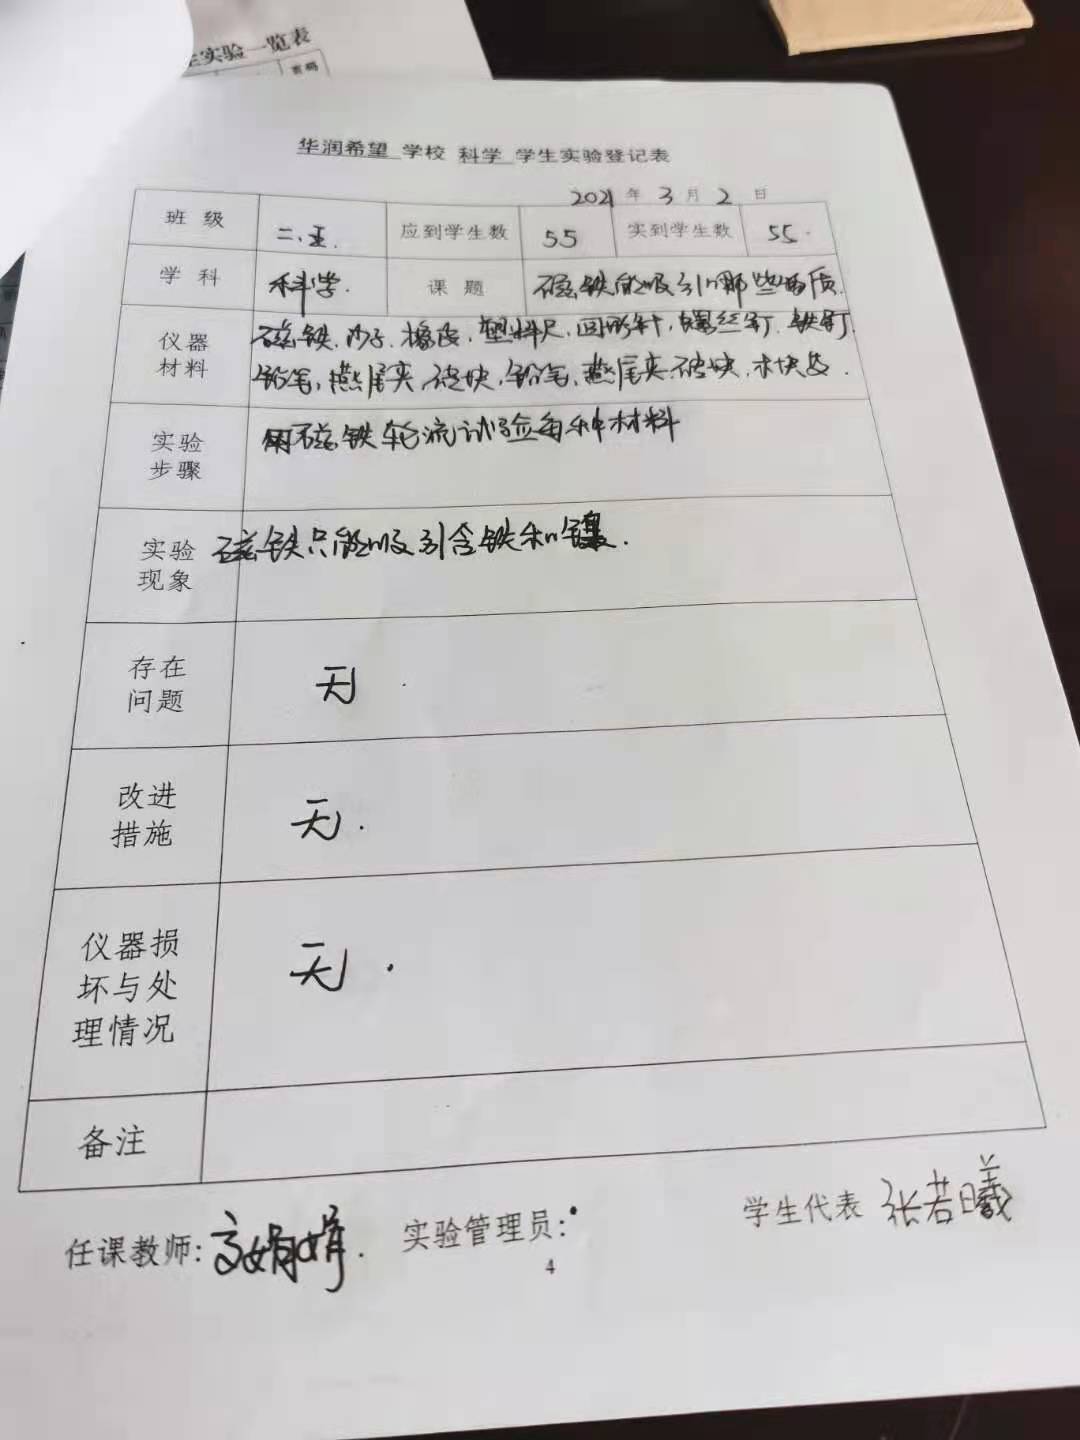 生实验一览表
页码
华润希望 学校 科学 学生实验登记表
2021 年 3 月 2 日
班级 二.五. 应到学生数 55 实到学生数 55.
学科 科学. 课题 磁铁能吸引哪些物质.
仪器材料 磁铁,沙子,橡皮,塑料尺,回形针,螺丝钉.铁钉
铅笔,燕尾夹,砖块,铅笔,燕尾夹,砖块,木块
实验步骤 用磁铁轮流试验每种材料
实验现象 磁铁只能吸引含铁和镍.
存在问题 无
改进措施 无.
仪器损坏与处理情况 无.
备注
任课教师: 实验管理员: 学生代表 张若曦
4